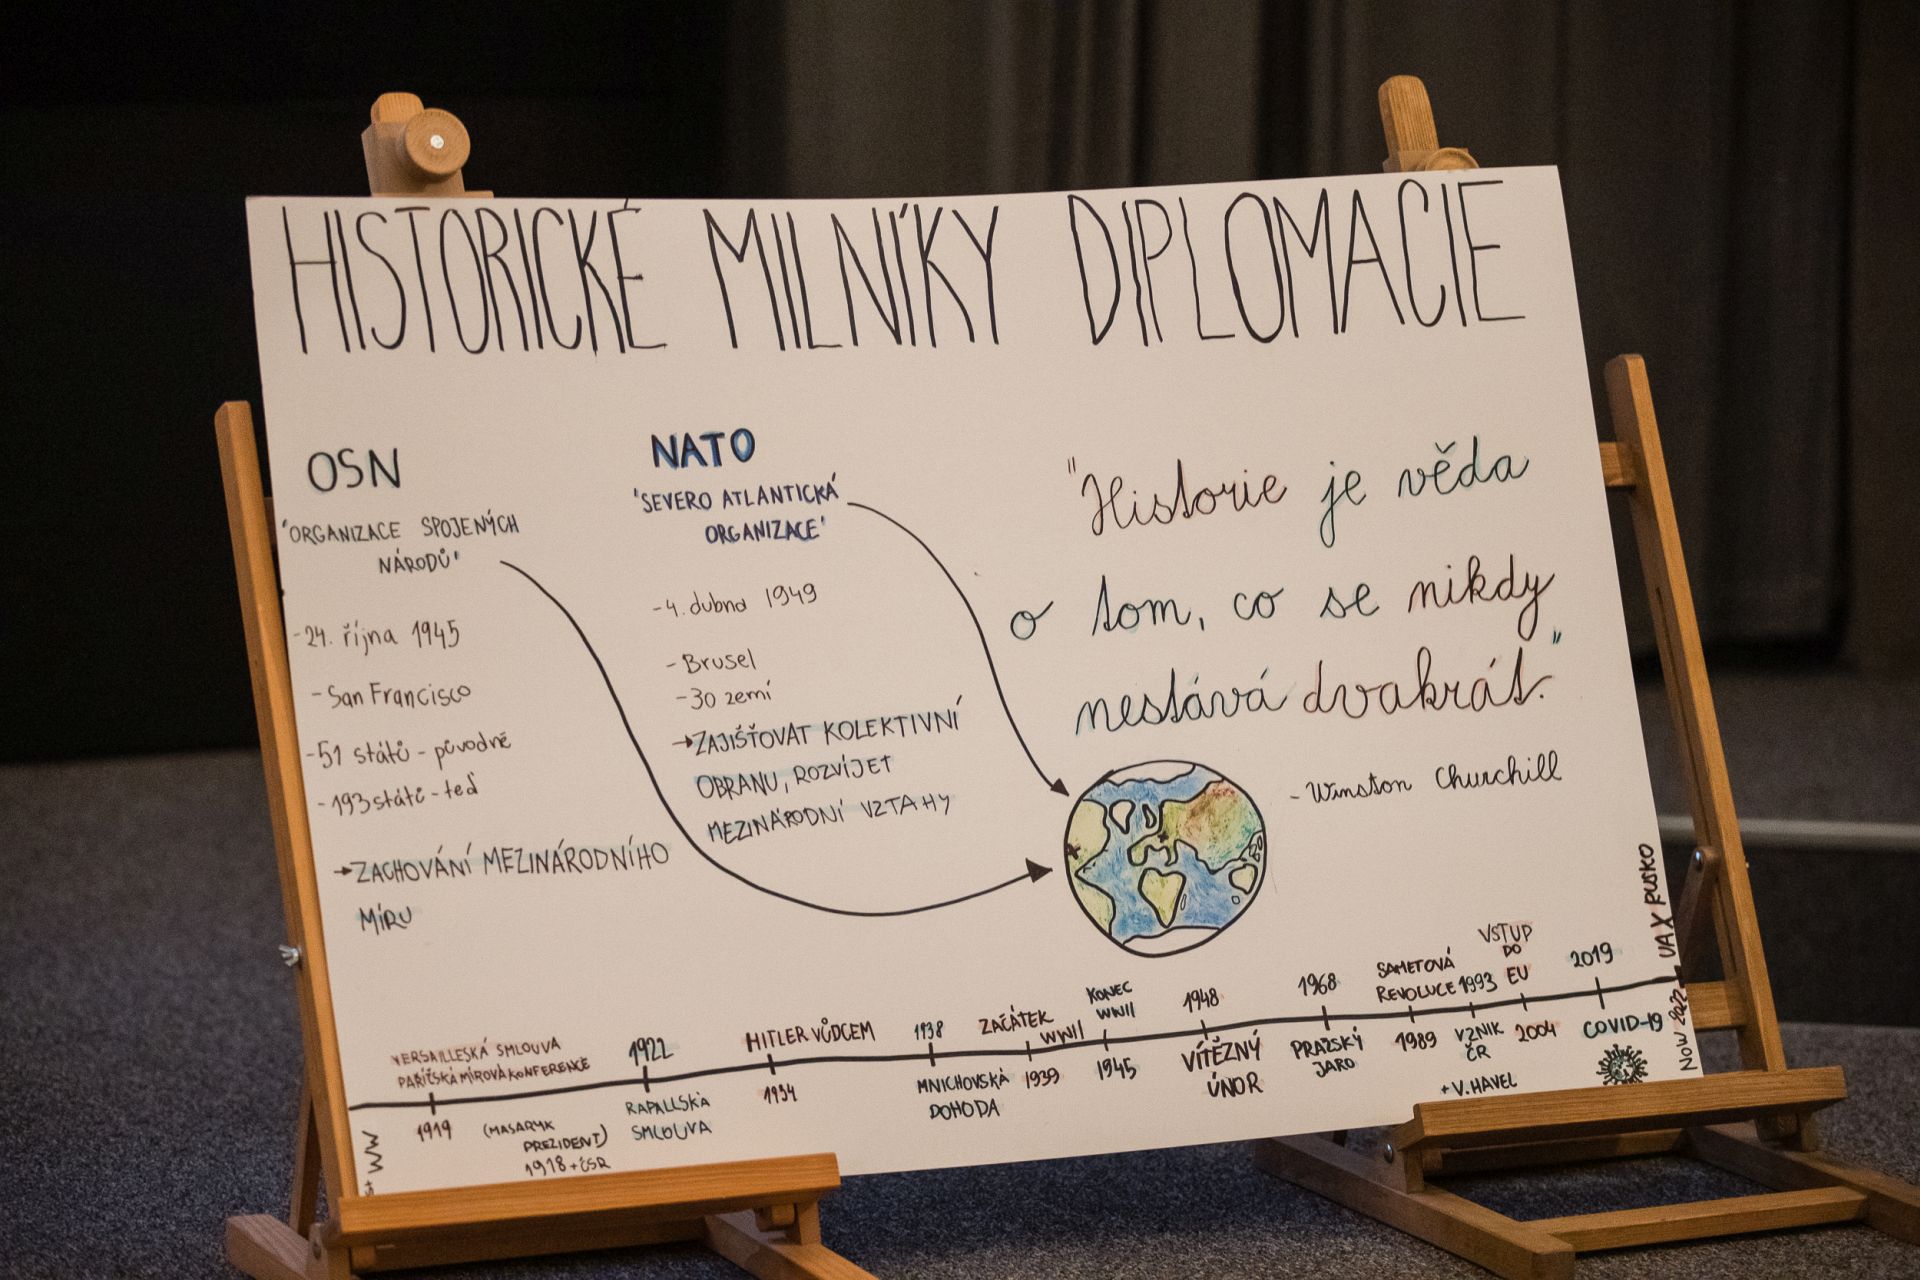 HISTORICKÉ MILNÍKY DIPLOMACIE
OSN
'ORGANIZACE SPOJENÝCH
NÁRODŮ'
-24. října 1945
-San Francisco
-51 států - původně
-193 států - teď
→ZACHOVÁNÍ MEZINÁRODNÍHO
MÍRU
NATO
'SEVERO ATLANTICKÁ
ORGANIZACE'
-4. dubna 1949
-Brusel
-30 zemí
→ZAJIŠŤOVAT KOLEKTIVNÍ
OBRANU, ROZVÍJET
MEZINÁRODNÍ VZTAHY
"Historie je věda
o tom, co se nikdy
nestává dvakrát."
-Winston Churchill
VERSAILLESKÁ SMLOUVA
PAŘÍŽSKÁ MÍROVÁ KONFERENCE
1919
(MASARYK
PREZIDENT)
1918 + ČSR
1922
RAPALLSKÁ
SMLOUVA
HITLER VŮDCEM
1934
1938
MNICHOVSKÁ
DOHODA
ZAČÁTEK
WWII
1939
KONEC
WWII
1945
1948
VÍTĚZNÝ
ÚNOR
1968
PRAŽSKÝ
JARO
SAMETOVÁ
REVOLUCE
1989
1993
VZNIK
ČR
+ V. HAVEL
VSTUP
DO
EU
2004
2019
COVID-19
UA X RUSKO
Now 2022
WW